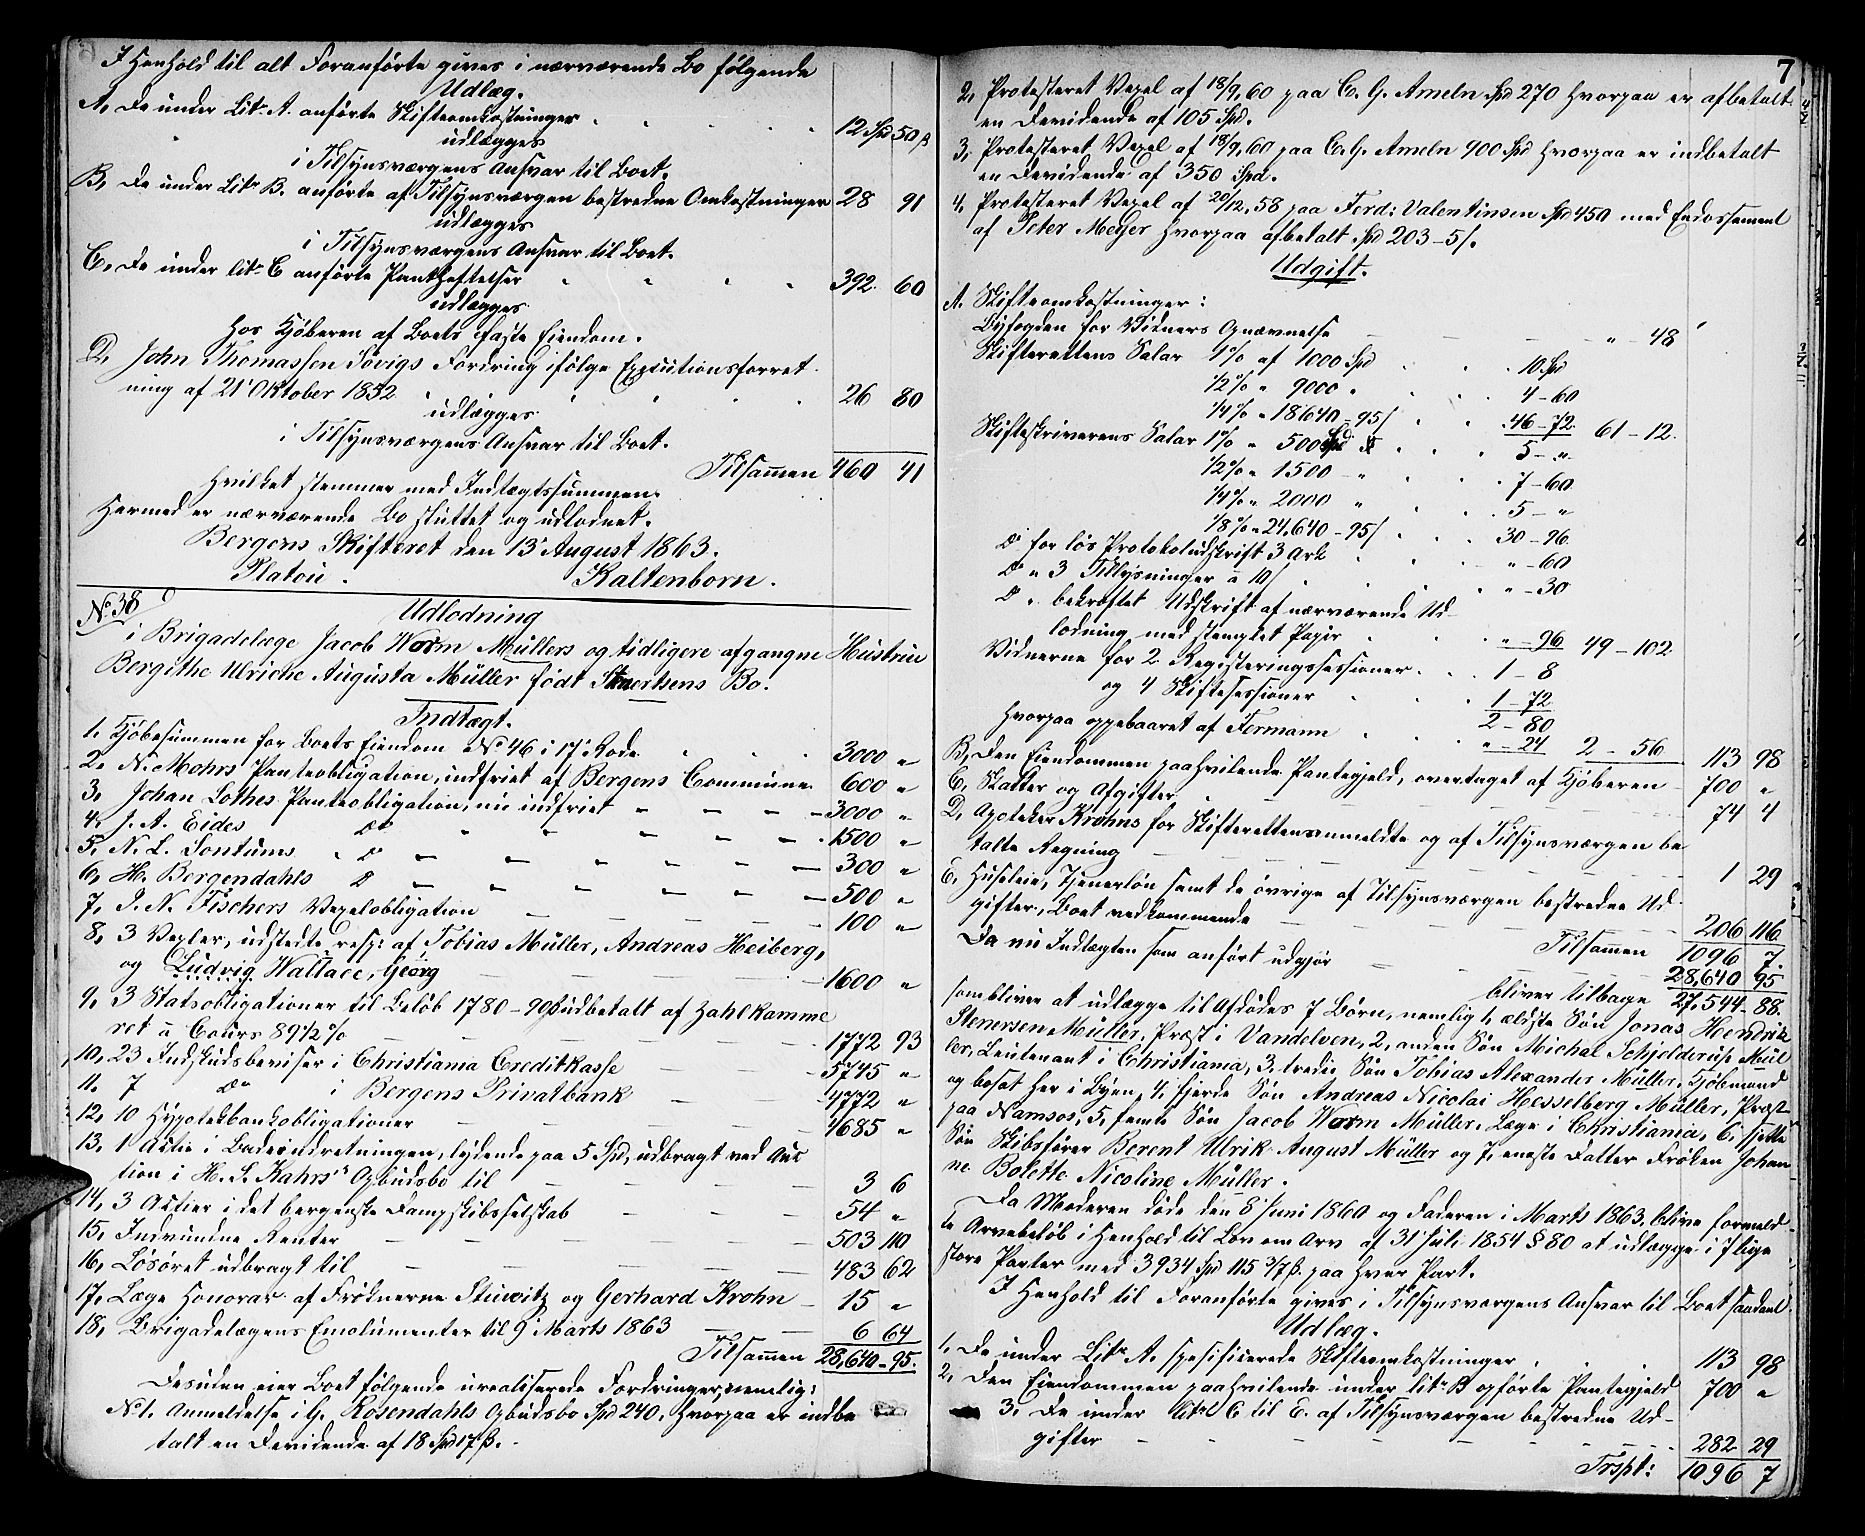 I Henhold til alt Foranførte gives i nærværende Bo følgende
Udlæg.
A, De under Litr. A. anførte Skifteomkostninger 12 Spd 50 ß
udlægges
i Tilsynsværgens Ansvar til Boet.
B, De under Litr B. anførte af Tilsynsværgen bestredne Omkostninger 28 91
udlægges
i Tilsynsværgens Ansvar til Boet.
C, De under litr C anførte Pantheftelser 392. 60
udlægges
hos Kjøberen af Boets faste Eiendom.
D, John Thomassen Søvigs Fordring ifølge Executionsforret
ning af 21 Oktober 1852 26 80
udlægges
i Tilsynsværgens Ansvar til Boet.
Tilsamen 460 41
hvilket stemmer med Indtægtssummen.
Hermed er nærværende Bo sluttet og udlodnet.
Bergens Skifteret den 13 August 1863.
Platou. Kaltenborn.
No 38 Udlodning
i Brigadelæge Jacob Worm Müllers og tidligere afgangne Hustrue
Bergithe Ulriche Augusta Müller født Stenersens Bo.
Indtægt.
1. Kjøbesummen for Boets Eiendom No 46 i 17 Rode 3000 "
2. N. Mohrs Panteobligation, indfriet af Bergens Commune 600 "
3, Johan Lothes Panteobligation, nu indfriet 3000 "
4. J. A. Eides Do 1500 "
5, N. L. Sontums Do 300 "
6, H. Bergendahls Do 500 "
7, J. N. Fischers Vexelobligation 100 "
8, 3 Vexler, udstedte resp: af Tobias Müller, Andreas Heiberg,
og Ludvig Wallace, Georg 1600 "
9, 3 Statsobligationer til Beløb 1780-90 ß udbetalt af Zahlkamme
ret à Cours 89½ % 1772 93
10, 23 Indskudsbeviser i Christiania Creditkasse 5745 "
11. 7 Do i Bergens Privatbank 4772 "
12, 10 Hypotekbankobligationer 4685 "
13, 1 Actie i Badeindretningen, lydende paa 5 Spd, udbragt ved Auc
tion i H. S. Kahrs's Opbudsbo til 3 6
14, 3 Actier i det bergenske Dampskibsselskab 54 "
15, Indvundne Renter 503 110
16, Løsøret udbragt til 483 62
17, Læge Honorar af Frøknerne Stuwitz og Gerhard Krohn 15 "
18, Brigadelægens Emolumenter til 9 Marts 1863 6 64
Tilsamen 28,640-95.
Desuden eier Boet følgende urealiserede Fordringer, nemlig:
No 1. Anmeldelse i G. Rosendahls Opbudsbo Spd 240, hvorpaa er indbe
talt en Devidende af 18 Spd 17 ß.
7
2, Protesteret Vexel af 18/9, 60 paa C. G. Ameln Spd 270 hvorpaa er afbetalt
en Devidende af 105 Spd.
3, Protesteret Vexel af 18/9, 60 paa C. G. Ameln 900 Spd hvorpaa er indbetalt
en Devidende af 350 Spd.
4, Protesteret Vexel af 20/12, 58 paa Ferd: Valentinsen Spd 450 med Endossement
af Peter Meyer hvorpaa afbetalt Spd 203-5 ß.
Udgift.
A. Skifteomkostninger:
Byfogden for Vidners Opnævnelse " - 48
Skifterettens Salar 1% af 1000 Spd 10 Spd
½% " 9000 " 4-60
¼% " 18640-95 ß 46-72. 61-12.
Skifteskriverens Salar 1% " 500 Spd 5 - "
½% " 1500 " 7-60
¼% " 2000 " 5 - "
⅛% " 24,640-95 ß 30-96
Do for løs Protokoludskrift 3 Ark " - 60
Do " 3 Tillysninger à 10 ß " - 30
Do " bekræftet Udskrift af nærværende Ud-
lodning med stemplet Papir " - 96 49-102
Vidnerne for 2 Registeringssessioner 1 - 8
og 4 Skiftesessioner 1-72
2-80
hvorpaa oppebaaret af Formann " - 24 2-56 113 98
B, Den Eiendommen paahvilende Pantegjeld, overtaget af Kjøberen 700 "
C, Skatter og Afgifter 74 4
D, Apoteker Krohns for Skifteretten anmeldte og af Tilsynsværgen be
talte Regning 1 29
E, Husleie, Tjenerløn samt de øvrige af Tilsynsværgen bestredne Ud
gifter, Boet vedkommende 206 116
Tilsamen 1096 7.
Da nu Indtægten som anført udgjør 28,640 95
bliver tilbage 27,544-88.
som bliver at udlægge til Afdødes 7 Børn, nemlig 1, ældste Søn Jonas Hendrik
Stenersen Müller, Præst i Vandelven, 2, anden Søn Michal Schjelderup Mül
ler, Leutenant i Christiania, 3, tredie Søn Tobias Alexander Müller, Kjøbmand
og bosat her i Byen, 4, fjerde Søn Andreas Nicolai Hesselberg Müller, Præst
paa Namsos, 5, femte Søn Jacob Worm Müller, Læge i Christiania, 6, sjette
Søn Skibsfører Berent Ulrik August Müller og 7, eneste Datter Frøken Johan
ne Bolette Nicoline Müller.
Da Moderen døde den 8 Juni 1860 og Faderen i Marts 1863, blive formeld
te Arvebeløb i Henhold til Lov om Arv af 31 Juli 1854 § 80 at udlægge i 7 lige
store Parter med 3934 Spd 115 3/7 ß. paa hver Part.
I Henhold til Foranførte gives i Tilsynsværgens Ansvar til Boet saadant
Udlæg.
1. De under Litr A. spesificerede Skifteomkostninger 113 98
2, Den Eiendommen paahvilende under litr B opførte Pantegjeld 700 "
3. De under Litr C til E. af Tilsynsværgen bestredne Ud-
gifter 282 29
Trspt: 1096 7